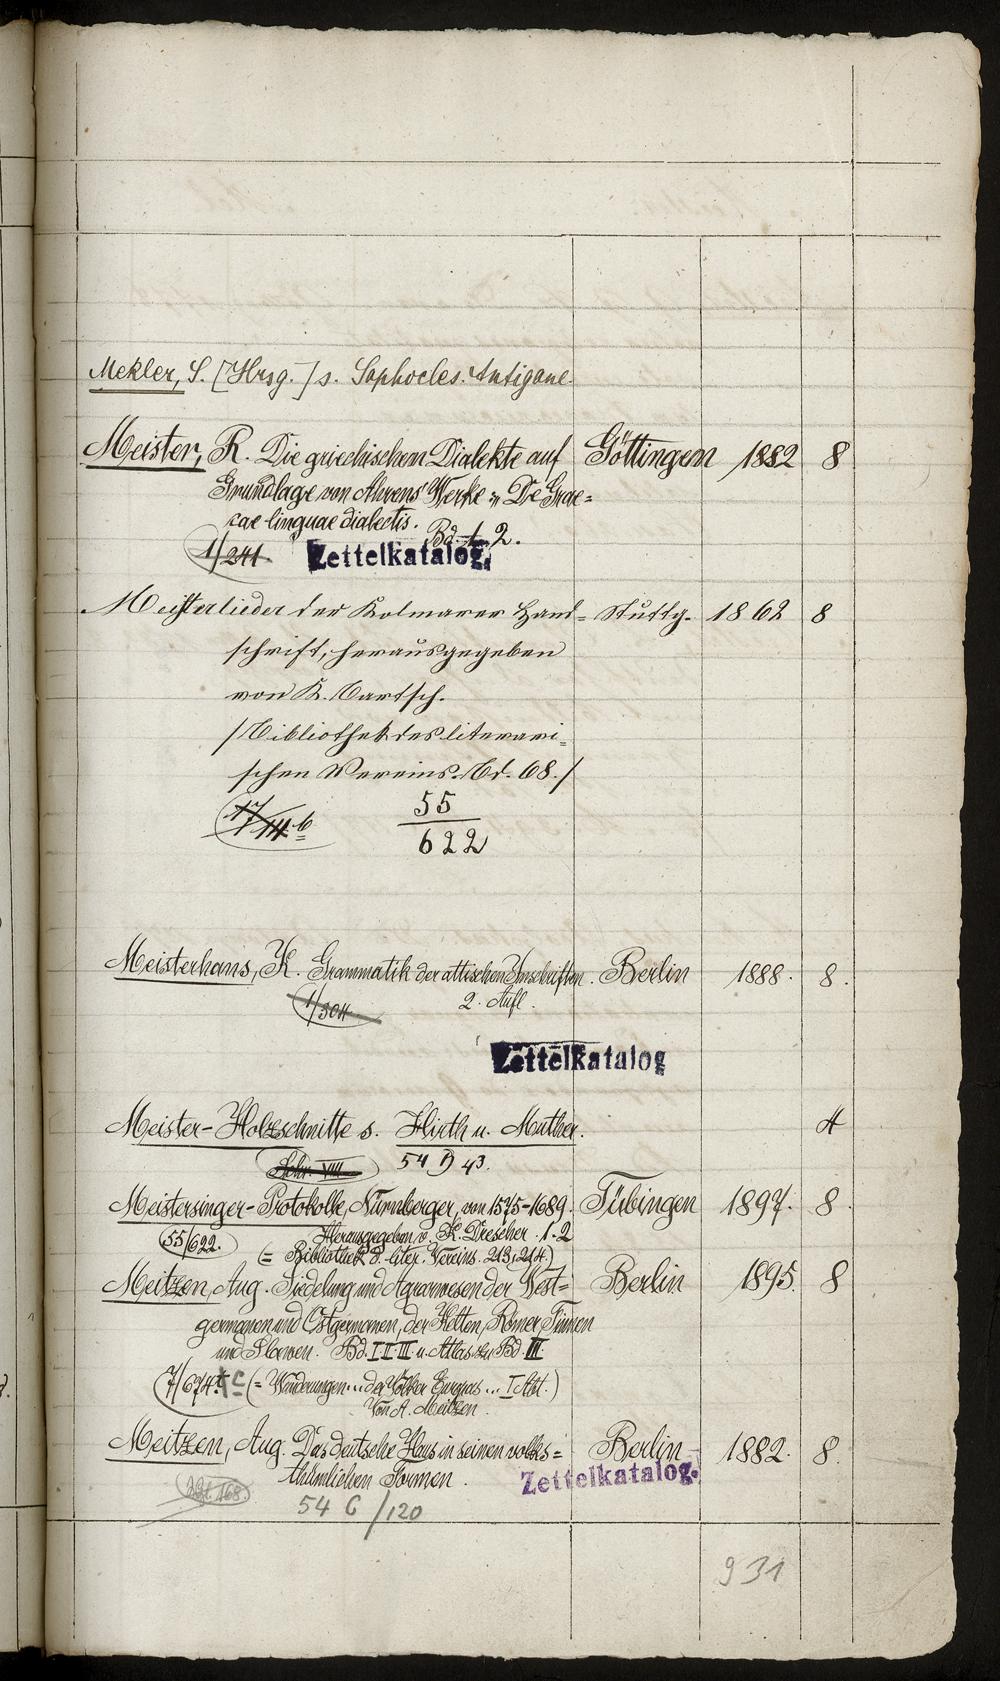 Mekler, S. [Hrsg.] s. Sophocles: Antigone.
Meister, R. Die griechischen Dialekte auf Göttingen 1882 8
Grundlage von Ahrens' Werke: „De Grae=
cae linguae dialectis. Bd. 1. 2.
1/241 Zettelkatalog.
Meisterlieder der Kolmarer Hand= Stuttg. 1862 8
schrift, herausgegeben
von K. Bartsch.
/Bibliothek des literari=
schen Vereins. Bd. 68./
17/III b 55
622
Meisterhans, K. Grammatik der attischen Inschriften. Berlin 1888. 8.
1/304 2. Aufl.
Zettelkatalog
Meister-Holzschnitte s. Hirth u. Muther. 4
Schr. VIII 54 D 43.
Meistersinger-Protokolle, Nürnberger, von 1575-1689. Tübingen 1897. 8
55/622. Herausgegeben v. K. Drescher. 1. 2
(= Bibliothek d. liter. Vereins. 213, 214.)
Meitzen, Aug. Siedelung und Agrarwesen der West= Berlin 1895. 8
germanen und Ostgermanen, der Kelten, Römer, Finnen
und Slawen. Bd. I. II. III u. Atlas zu Bd. III.
7/674 c (= Wanderungen... der Völker Europas... I. Abt.)
Von A. Meitzen.
Meitzen, Aug. Das deutsche Haus in seinen volks= Berlin 1882. 8.
thümlichen Formen. Zettelkatalog.
168.
54 C/120
931